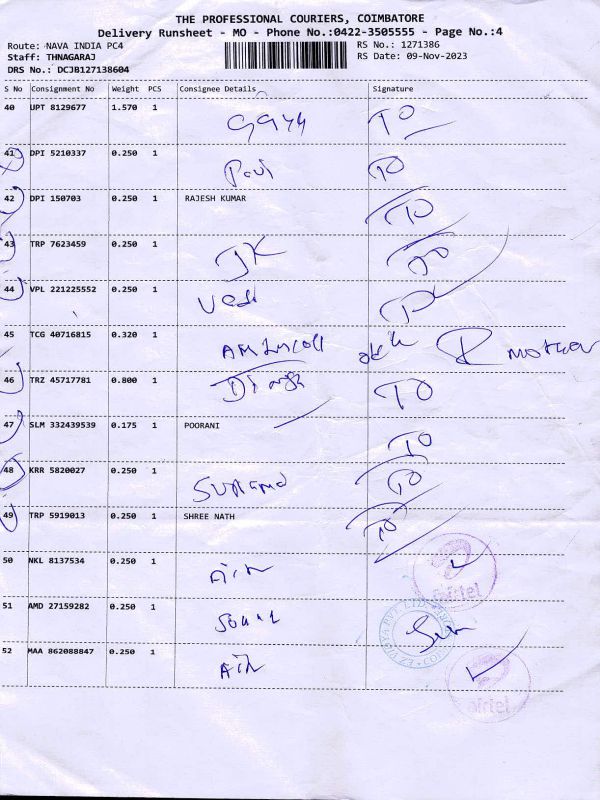 THE PROFESSIONAL COURIERS, COIMBATORE
Delivery Runsheet - MO - Phone No.:0422-3505555 - Page No.:4
Route: NAVA INDIA PC4
RS No.: 1271386
Staff: THNAGARAJ
RS Date: 09-Nov-2023
DRS No.: DCJB127138604
S No Consignment No Weight PCS Consignee Details Signature
40 UPT 8129677 1.570 1 TO
41 DPI 5210337 0.250 1 TO
42 DPI 150703 0.250 1 RAJESH KUMAR TO
43 TRP 7623459 0.250 1 JK TO
44 VPL 221225552 0.250 1
45 TCG 40716815 0.320 1
46 TRZ 45717781 0.800 1 TO
47 SLM 332439539 0.175 1 POORANI TO
48 KRR 5820027 0.250 1 TO
49 TRP 5919013 0.250 1 SHREE NATH TO
50 NKL 8137534 0.250 1 airtel
51 AMD 27159282 0.250 1
52 MAA 862088847 0.250 1 airtel